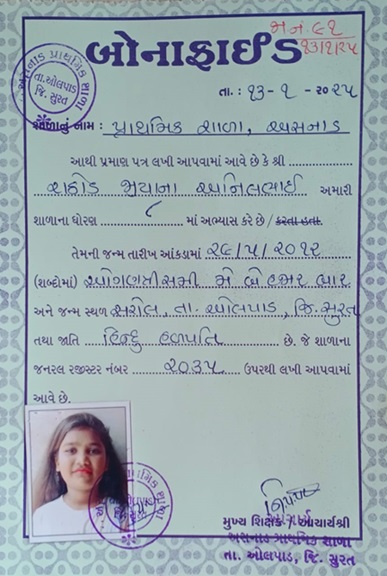 મ.ન. ૬૧
૧૩/૧/૨૫
બોનાફાઈડ
અસનાડ પ્રાથમિક શાળા
તા.ઓલપાડ
જિ. સુરત
તા. : ૧૩ - ૧ - ૨૦૨૫
શાળાનું નામ : પ્રાથમિક શાળા, અસનાડ
આથી પ્રમાણ પત્ર લખી આપવામાં આવે છે કે શ્રી
રાઠોડ અનિલભાઈ અમારી
શાળાના ધોરણ ૮ માં અભ્યાસ કરે છે / કરતા હતા.
તેમની જન્મ તારીખ આંકડામાં ૨૯/૫/૨૦૧૨
(શબ્દોમાં) ઓગણત્રીસમી મે બે હજાર બાર
અને જન્મ સ્થળ સરોલ, તા. ઓલપાડ, જિ. સુરત
તથા જાતિ હિન્દુ હળપતિ છે. જે શાળાના
જનરલ રજીસ્ટર નંબર ૨૦૩૫ ઉપરથી લખી આપવામાં
આવે છે.
મુખ્ય શિક્ષક / આચાર્યશ્રી
અસનાડ પ્રાથમિક શાળા
તા. ઓલપાડ, જિ. સુરત